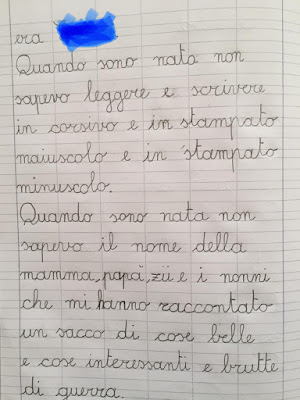 era
Quando sono nata non
sapevo leggere e scrivere
in corsivo e in stampato
maiuscolo e in stampato
minuscolo.
Quando sono nata non
sapevo il nome della
mamma, papà, zii e i nonni
che mi hanno raccontato
un sacco di cose belle
e cose interessanti e brutte
di guerra.